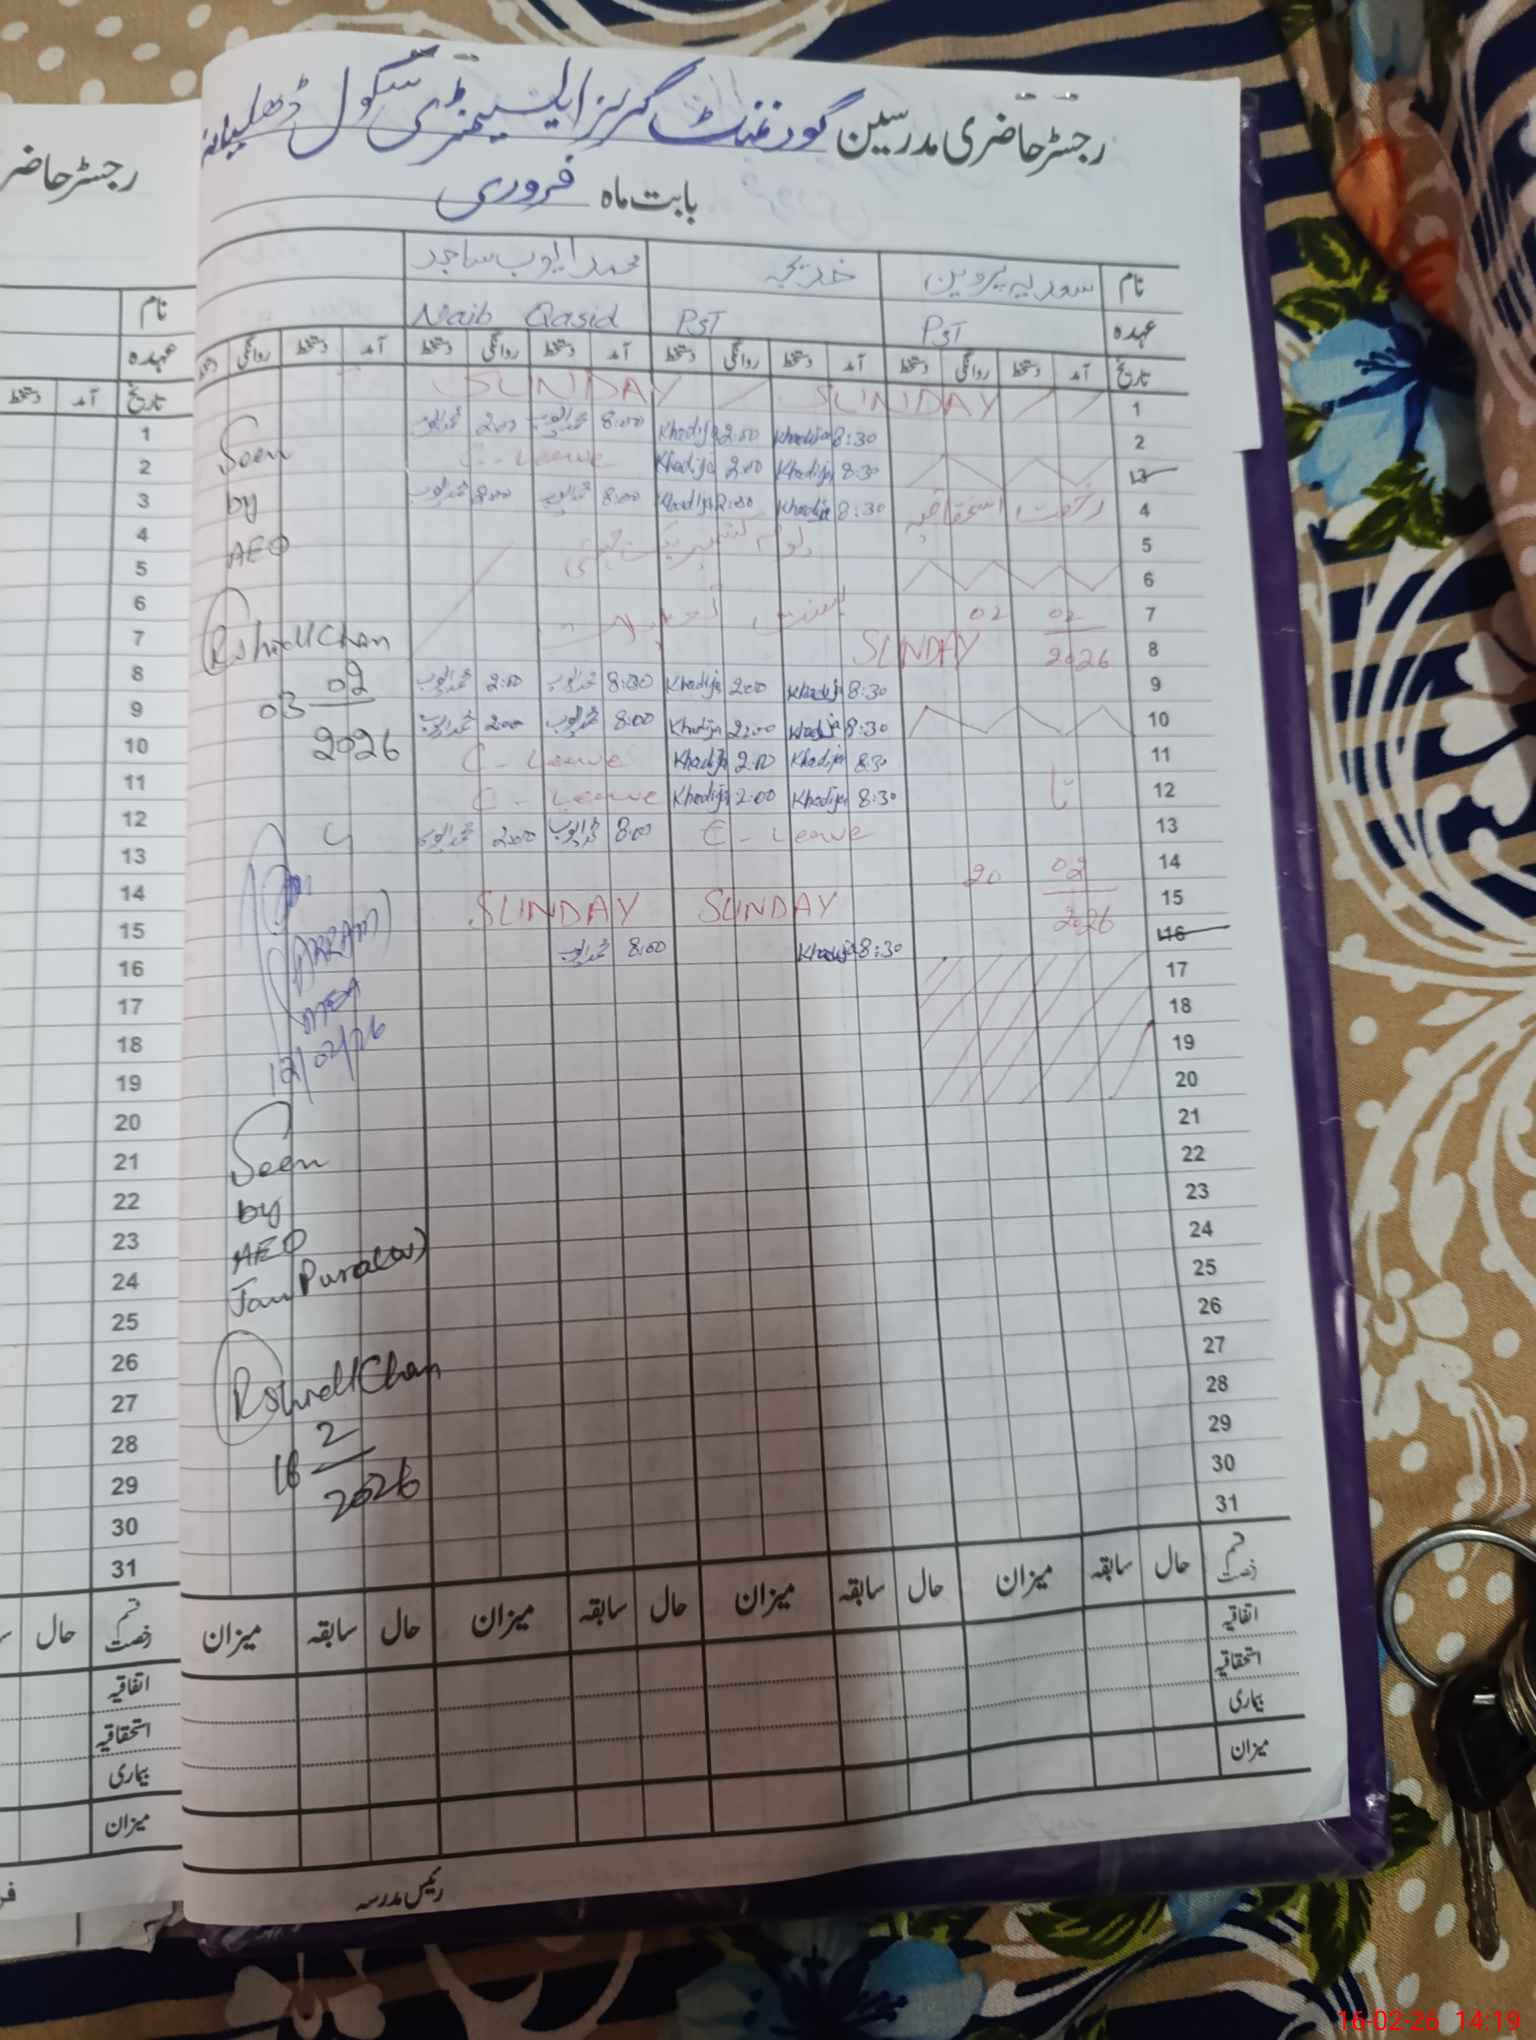 رجسٹر حاضری مدرسین گورنمنٹ گرلز ایلیمنٹری سکول ڈھلیانہ
بابت ماہ فروری
نام سعدیہ پروین خدیجہ محمد ایوب ساجد
عہدہ PST PST Naib Qasid
تاریخ آمد دستخط روانگی دستخط آمد دستخط روانگی دستخط آمد دستخط روانگی دستخط آمد دستخط روانگی دستخط
1 SUNDAY SUNDAY
2 8:30 Khadija 2:00 Khadija 8:00 محمد ایوب 2:00 محمد ایوب
3 8:30 Khadija 2:00 Khadija C-Leave
4 رخصت استحقاقیہ 8:30 Khadija 2:00 Khadija 8:00 محمد ایوب 2:00 محمد ایوب
5 یوم کشمیر
6
7 02 02
8 2026 SUNDAY
9 8:30 Khadija 2:00 Khadija 8:30 محمد ایوب 2:00 محمد ایوب
10 8:30 Khadija 2:00 Khadija 8:00 محمد ایوب 2:00 محمد ایوب
11 8:30 Khadija 2:00 Khadija C-Leave
12 تا 8:30 Khadija 2:00 Khadija C-Leave
13 C-Leave 8:00 محمد ایوب 2:00 محمد ایوب
14 20 02
15 2026 SUNDAY SUNDAY
16 8:30 Khadija 8:00 محمد ایوب
17
18
19
20
21
22
23
24
25
26
27
28
29
30
31
Seen
by
AEO
03 02
2026
12/02/26
Seen
by
AEO
16 2
2026
قسم رخصت حال سابقہ میزان حال سابقہ میزان حال سابقہ میزان حال سابقہ میزان
اتفاقیہ
استحقاقیہ
بیماری
میزان
رئیس مدرسہ
رجسٹر حاضر
نام
عہدہ
تاریخ آمد دستخط
1
2
3
4
5
6
7
8
9
10
11
12
13
14
15
16
17
18
19
20
21
22
23
24
25
26
27
28
29
30
31
قسم رخصت حال
اتفاقیہ
استحقاقیہ
بیماری
میزان
16-02-26 14:19